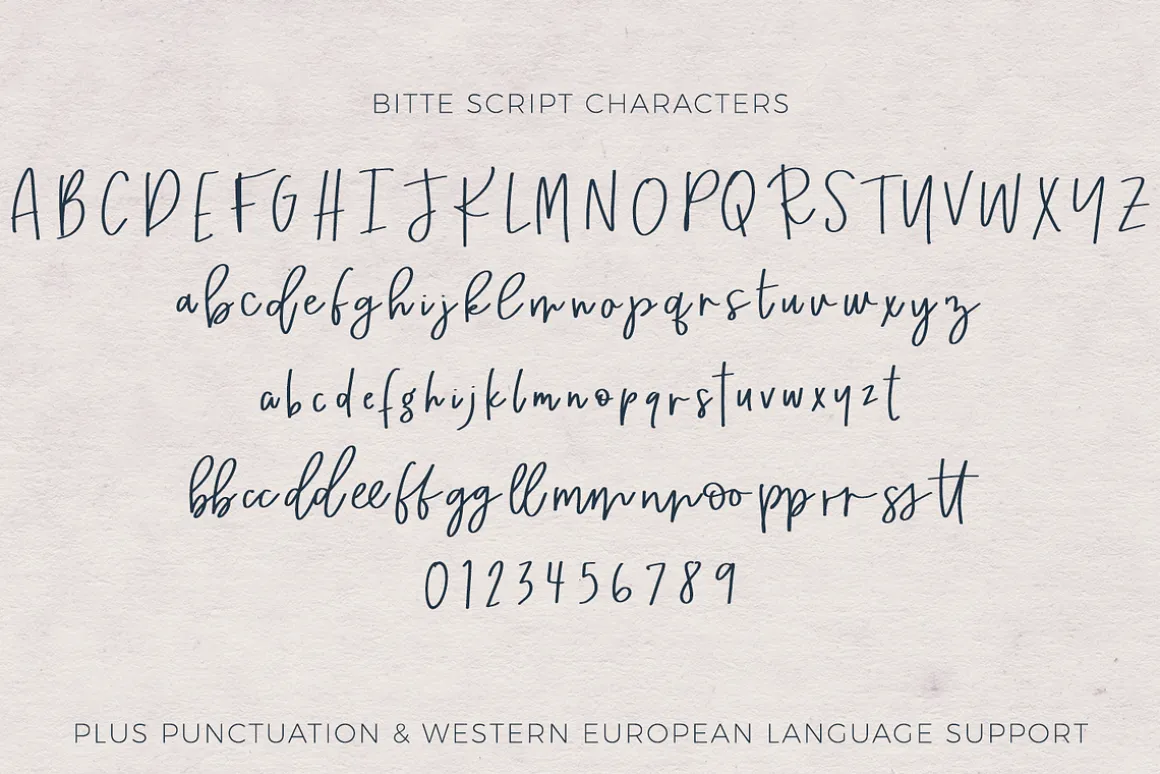 BITTE SCRIPT CHARACTERS
ABCDEFGHIJKLMNOPQRSTUVWXYZ
abcdefghijklmnopqrstuvwxyz
abcdefghijklmnopqrstuvwxyzt
bbccddeeffggllmmnnoopprrsstt
0123456789
PLUS PUNCTUATION & WESTERN EUROPEAN LANGUAGE SUPPORT